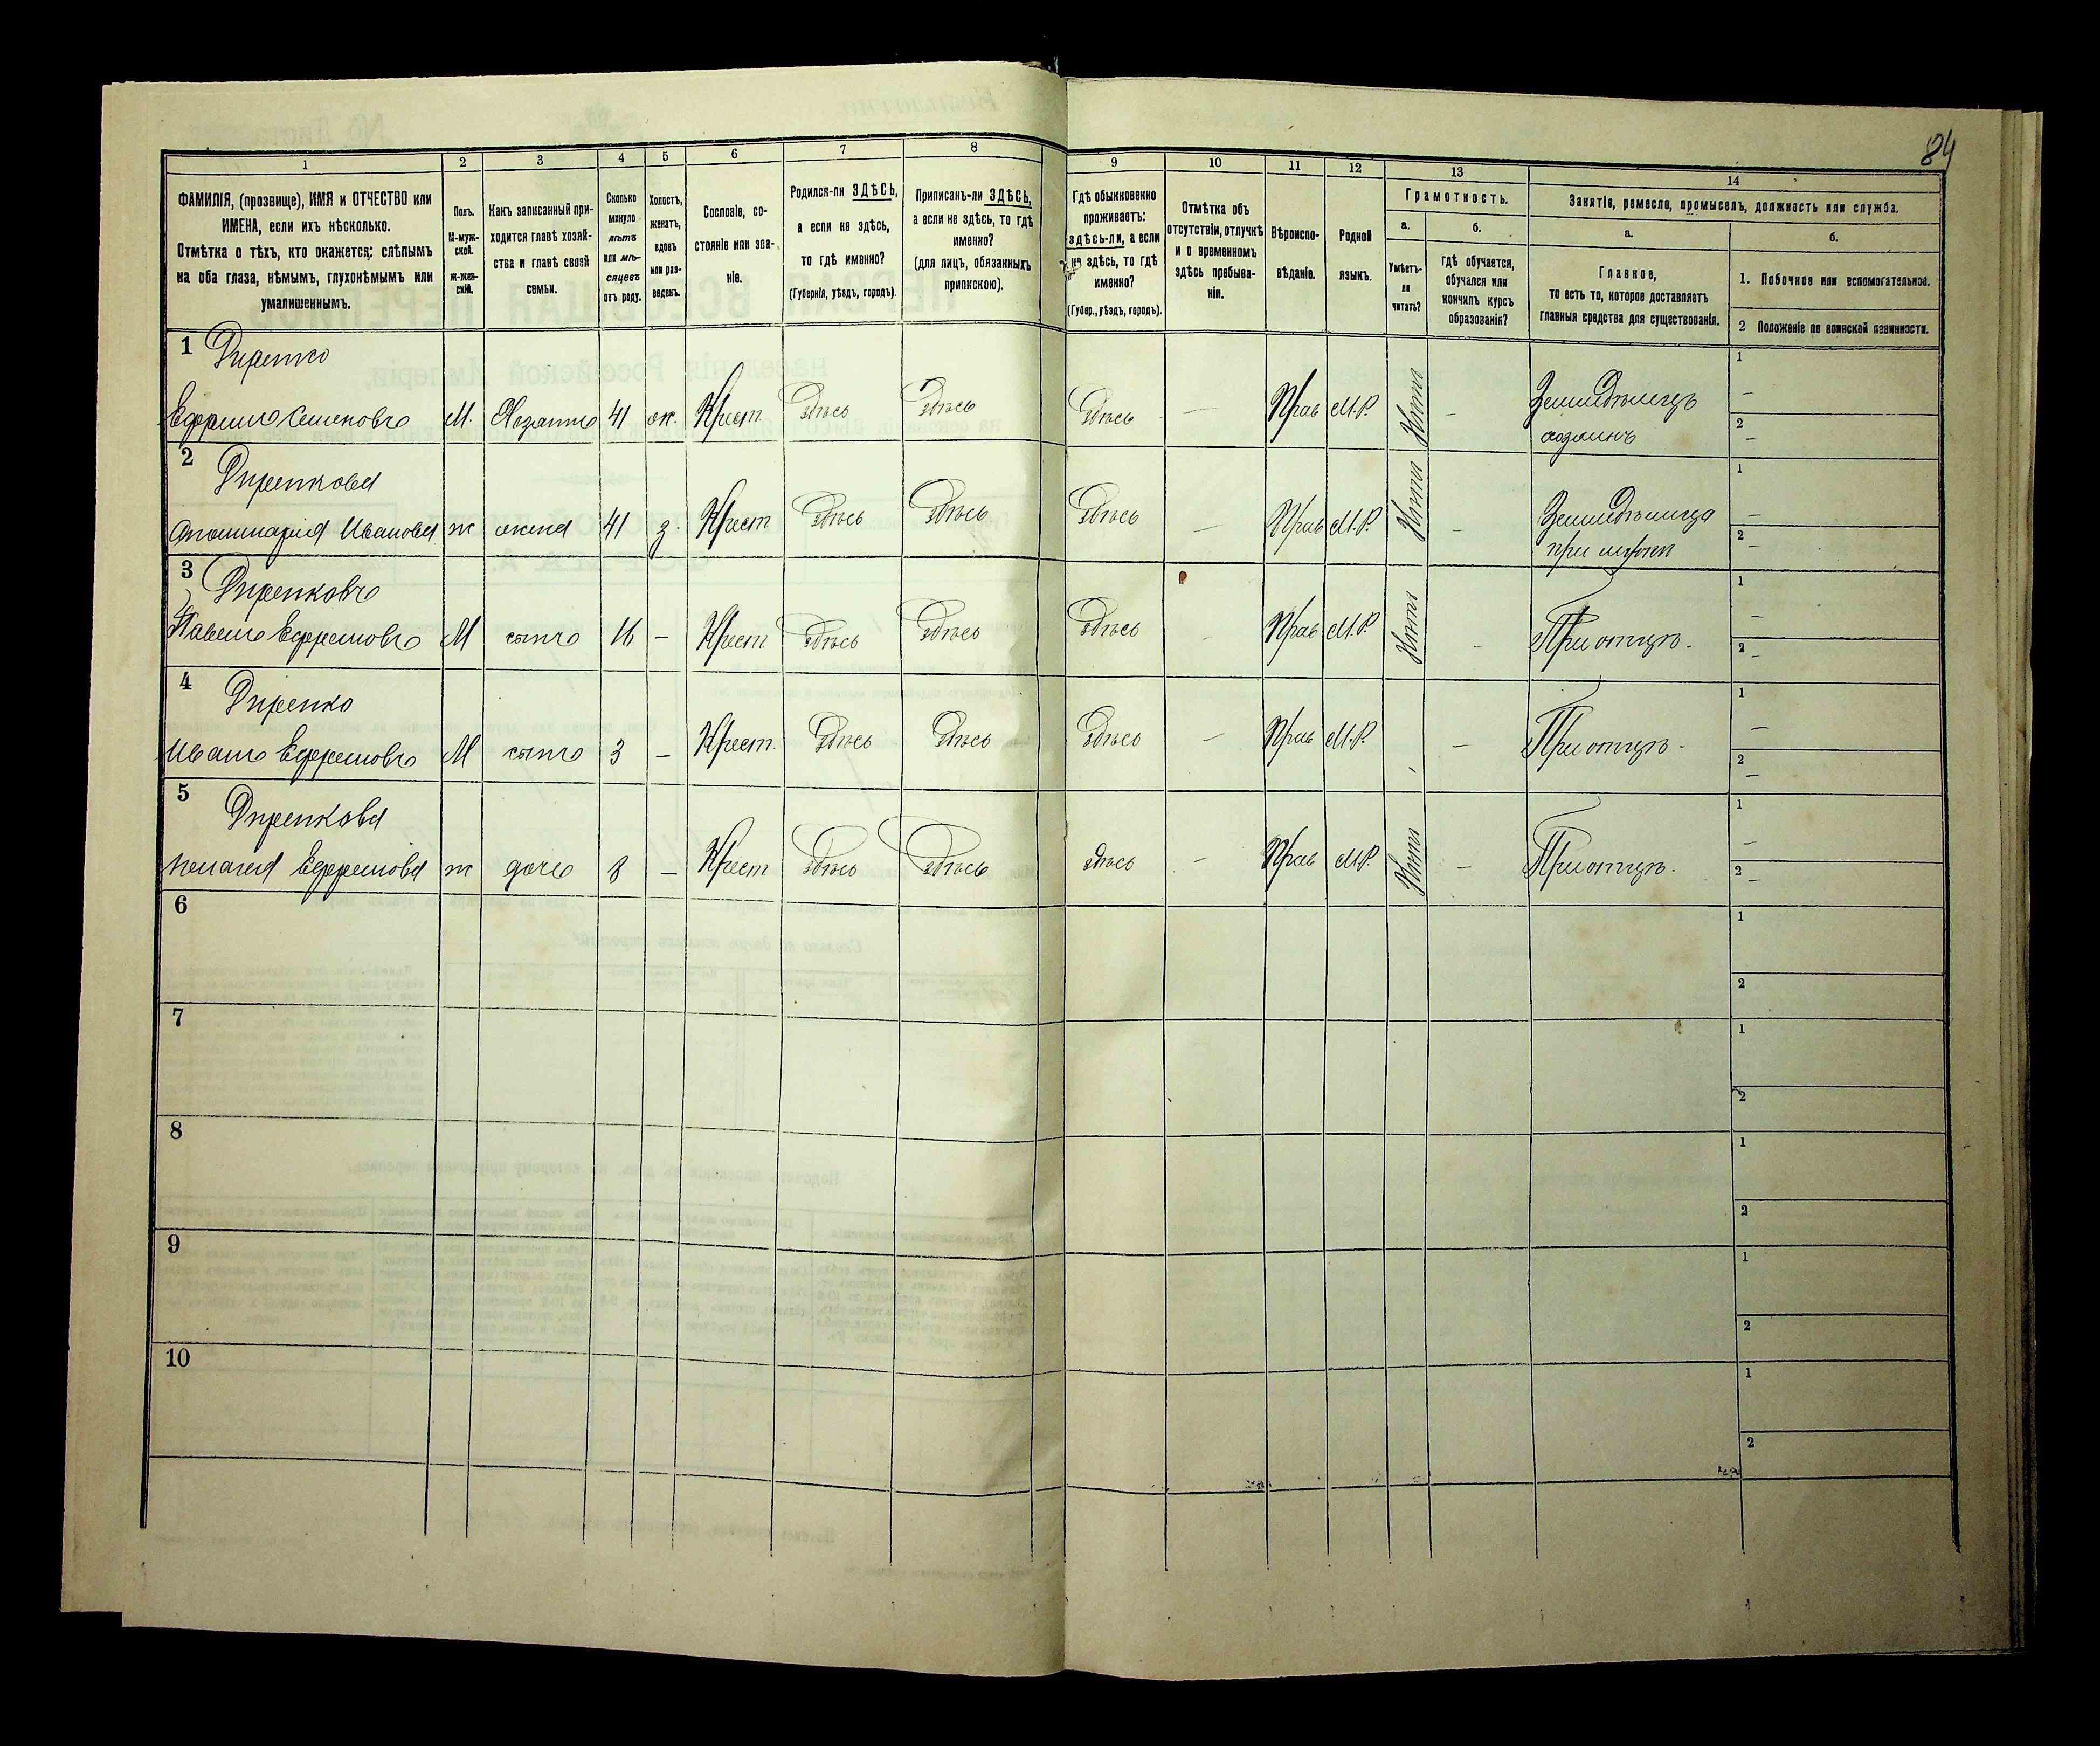 84
1 2 3 4 5 6 7 8 9 10 11 12 13 14
ФАМИЛІЯ, (прозвище), ИМЯ и ОТЧЕСТВО или
ИМЕНА, если ихъ нѣсколько.
Отмѣтка о тѣхъ, кто окажется: слѣпымъ
на оба глаза, нѣмымъ, глухонѣмымъ или
умалишеннымъ.
Полъ.
М-муж-
ской.
ж-жен-
скій.
Какъ записанный при-
ходится главѣ хозяй-
ства и главѣ своей
семьи.
Сколько
минуло
лѣтъ
или мѣ-
сяцевъ
отъ роду.
Холостъ,
женатъ,
вдовъ
или раз-
веденъ.
Сословіе, со-
стояніе или зва-
ніе.
Родился-ли ЗДѢСЬ,
а если не здѣсь,
то гдѣ именно?
(Губернія, уѣздъ, городъ).
Приписанъ-ли ЗДѢСЬ,
а если не здѣсь, то гдѣ
именно?
(для лицъ, обязанныхъ
припискою).
Гдѣ обыкновенно
проживаетъ:
здѣсь-ли, а если
не здѣсь, то гдѣ
именно?
(Губер., уѣздъ, городъ).
Отмѣтка объ
отсутствіи, отлучкѣ
и о временномъ
здѣсь пребыва-
ніи.
Вѣроиспо-
вѣданіе.
Родной
языкъ.
Грамотность.
а.
Умѣетъ-
ли
читать?
б.
гдѣ обучается,
обучался или
кончилъ курсъ
образованія?
Занятіе, ремесло, промыселъ, должность или служба.
а.
Главное,
то есть то, которое доставляетъ
главныя средства для существованія.
б.
1. Побочное или вспомогательное.
2 Положеніе по воинской повинности.
1
Ефремъ Семеновъ М. Хозяинъ 41 ж. Крест. здѣсь здѣсь здѣсь — Прав М.Р. Нѣтъ — Земледѣлецъ 1 —
хозяинъ 2 —
2 Диренкова
Аполинарія Иванова ж жена 41 з. Крест здѣсь здѣсь здѣсь — Прав М.Р. Нѣтъ — Земледѣлица 1 —
при мужѣ 2 —
3 Диренковъ
Павелъ Ефремовъ М сынъ 16 — Крест здѣсь здѣсь здѣсь — Прав М.Р. Нѣтъ — При отцѣ. 1 — 2 —
4 Диренко
Иванъ Ефремовъ М сынъ 3 — Крест. здѣсь здѣсь здѣсь — Прав М.Р. — При отцѣ. 1 — 2 —
5 Диренкова
Пелагея Ефремова ж дочь 8 — Крест здѣсь здѣсь здѣсь — Прав М.Р. Нѣтъ — При отцѣ. 1 — 2 —
6 1 2
7 1 2
8 1 2
9 1 2
10 1 2